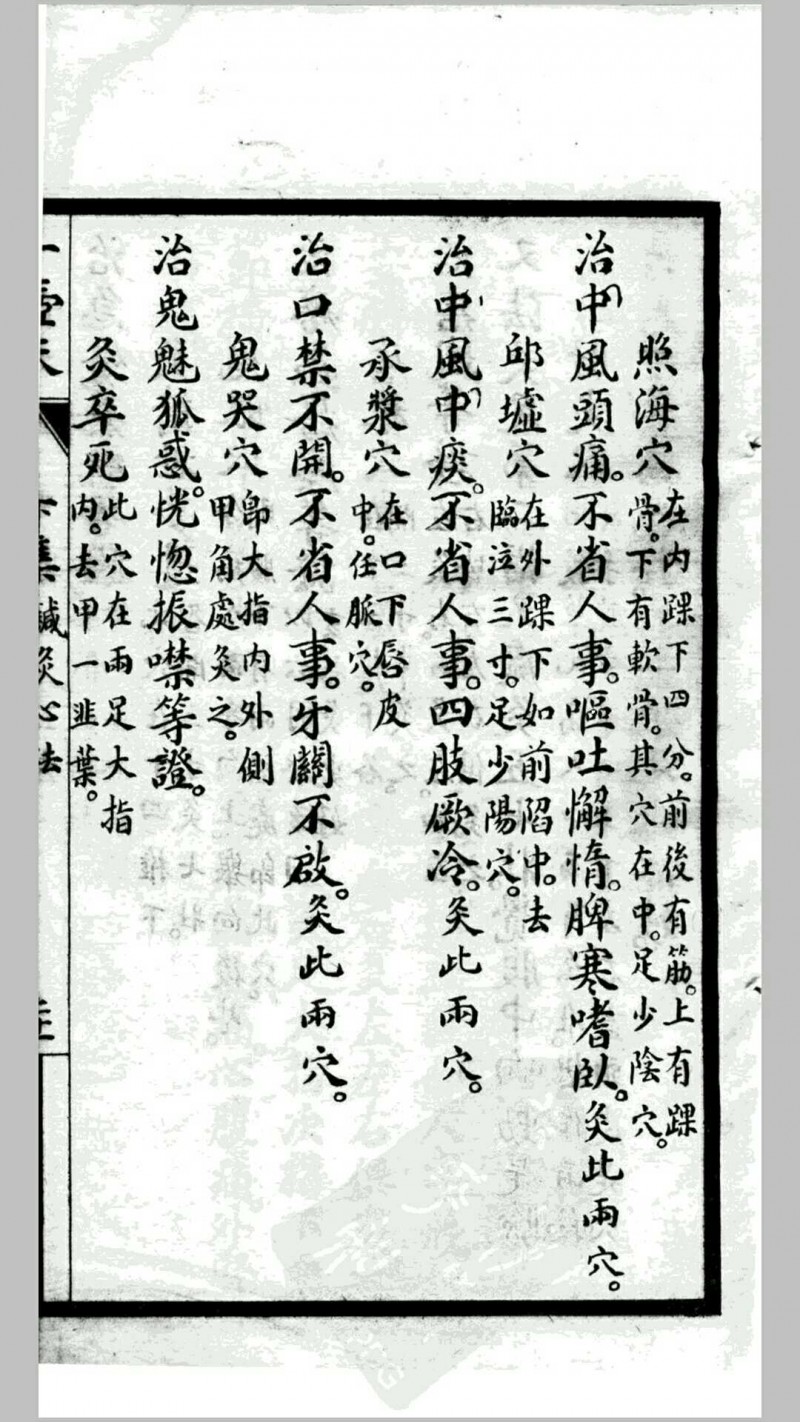 照海穴 在内踝下四分。前後有筋。上有踝
骨。下有軟骨。其穴在中。足少陰穴。
治中風頭痛。不省人事。嘔吐懈惰。脾寒嗜臥。灸此兩穴。
邱墟穴 在外踝下如前陷中。去
臨泣三寸。足少陽穴。
治中風中痰。不省人事。四肢厥冷。灸此兩穴。
承漿穴 在口下唇皮
中。任脈穴。
治口禁不開。不省人事。牙關不啟。灸此兩穴。
鬼哭穴 即大指内外側
甲角處灸之。
治鬼魅狐惑。恍惚振噤等證。
灸卒死 此穴在兩足大指
内。去甲一韭葉。
集鍼灸心法